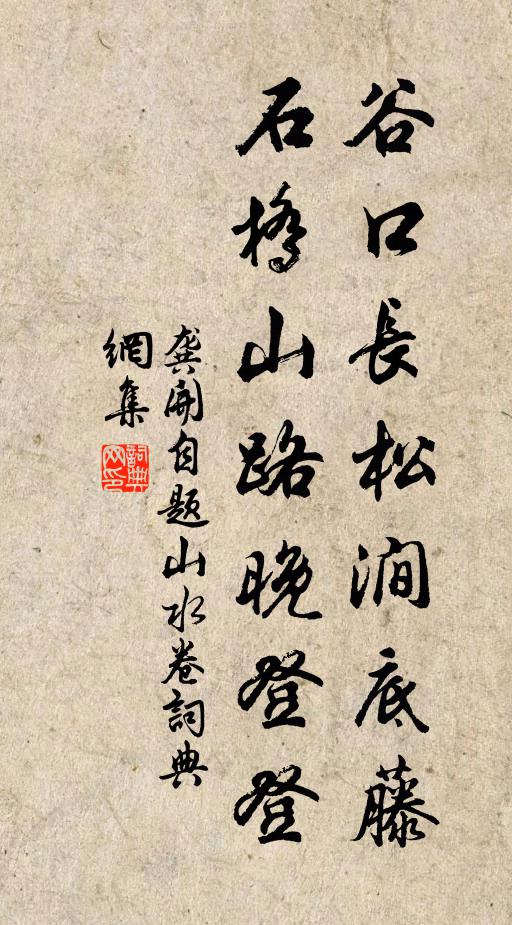 谷口長松澗底藤
石橋山路晚登登
龔開自題山水卷詞典
網集
詞典網印